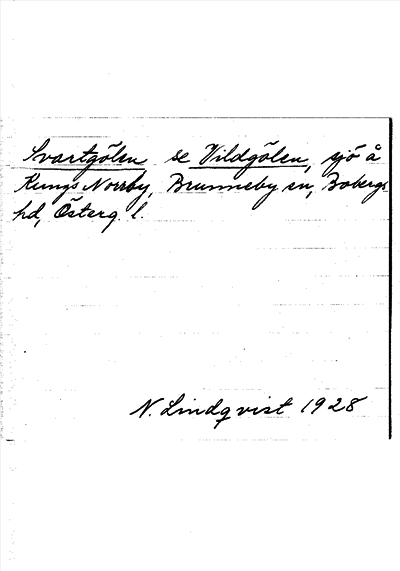 Svartgölen se Vildgölen, sjö å
Kungs Norrby, Brunneby sn, Bobergs
hd, Österg. l.
N. Lindqvist 1928